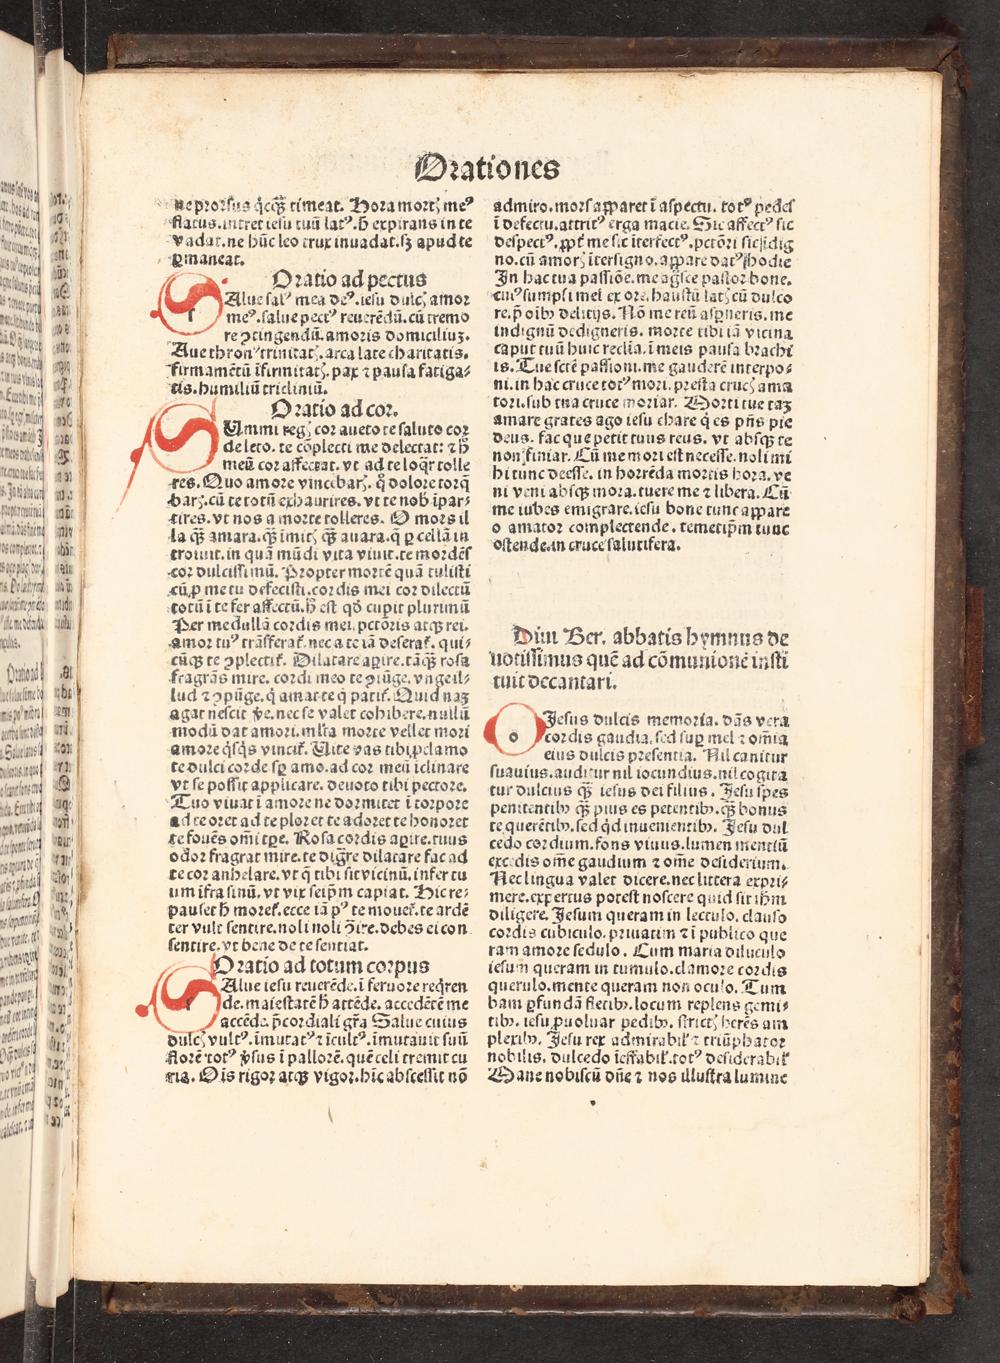 Orationes
ne prorsus q̇cq̃ꝫ timeat. Hora mortꝫ meꝰ
flatus.intret iesu tuū latꝰ.ħ expirans in te
vadat.ne hūc leo trux inuadat.sꝫ apud te
ꝑmaneat.
Oratio ad pectus
Salue salꝰ mea deꝰ.iesu dulcꝫ amor
meꝰ.salue pectꝰ reuerēdū.cū tremo
re ꝯtingendū.amoris domiciliuꝫ.
Aue thronꝰ trinitatꝫ.arca late charitatis.
firmamētū īfirmitatꝫ.pax ⁊ pausa fatiga⸗
tis.humiliū tricliniū.
Oratio ad cor.
SUmmi regꝫ cor aueto te saluto cor
de leto. te cōplecti me delectat: ⁊ ħ
meū cor affectat. vt ad te loq̄r tolle
res. Quo amore vincebarꝫ. q̊ dolore torq̄
barꝫ.cū te totū exhaurires. vt te nob ipar⸗
tires. vt nos a morte tolleres. O mors il
la q̃ꝫ amara. q̃ꝫ īmitꝫ q̃ꝫ auara.q̄ ꝑ cellā in
troiuit. in quā mūdi vita viuit.te mordēs
cor dulcissimū. Propter mortē quā tulisti
cū.ꝓ me tu defecisti.cordis mei cor dilectū
totū ī te fer affectū.ħ est qd̄ cupit plurimū
Per medullā cordis mei.pctōris atqꝫ rei.
amor tuꝰ trāsferat̄.nec a te iā deserat̄. qui⸗
cūqꝫ te ꝯplectit̄. Dilatare aꝑire.tāq̃ꝫ rosa
fragrās mire. cordi meo te ꝯiūge. vnge il⸗
lud ⁊ ꝯpūge.q̇ amat te q̇ patit̄. Quid naꝫ
agat nescit ꝟe.nec se valet cohibere.nullū
modū dat amori.mlta morte vellet mori
amore q̇sq̇s vincit̄. Uite vas tibi.ꝓclamo
te dulci corde sꝑ amo.ad cor meū īclinare
vt se possit applicare. deuoto tibi pectore.
Tuo viuat ī amore ne dormitet ī torpore
ad te oret ad te ploret te adoret te honoret
te fouēs om̄i tꝑe. Rosa cordis aꝑire.tuus
odor fragrat mire.te dig̃re dilatare fac ad
te cor anhelare. vt q̇ tibi sit vicinū. infer tu
um īfra sinū. vt vix seip̄m capiat. Hic re⸗
pauset ħ moret̄.ecce iā pꝰ te mouet̄.te ardē
ter vult sentire.noli noli ꝯire.debes ei con
sentire.vt bene de te sentiat.
Oratio ad totum corpus
SAlue iesu reuerēde.ī feruore reqrēn
de.maiestatē ħ attēde. accedētē me
accēde.p̄cordiali gr̄a Salue cuius
dulcꝫ vultꝰ.īmutatꝰ ⁊ īcultꝰ.īmutauit suū
florē totꝰ ꝟsus ī pallorē.quē celi tremit cu
ria. Oīs rigor atqꝫ vigor.hīc abscessit nō
admiro.mors apparet ī aspectu. totꝰ pēdēs
ī defectu.attritꝰ erga macie. Sic affectꝰ sic
despectꝰ.ꝓpt̄ me sic īterfectꝰ.pctōri sic īdig
no.cū amorꝫ īter signo.appare datꝰ hodie
In hac tua passiōe.me ag̃sce pastor bone.
cuiꝰ sumpsi mel ex ore.haustū latꝫ cū dulco
re.p̄ oīb⁊ delitijs. Nō me reū asꝑneris.me
indignū dedigneris. morte tibi iā vicina
caput tuū huic reclīa.ī meis pausa brachi
is. Tue sctē passioni.me gauderē interpo⸗
ni.in hac cruce totꝰ mori. presta crucꝫ ama
tori.sub tua cruce moriar. Morti tue taꝫ
amare grates ago iesu chare q̇ es pūs pie
deus. fac que petit tuus reus. vt absqꝫ te
non finiar. Cū me mori est necesse.noli mi
hi tunc deesse. in horrēda mortis hora. ve
ni veni absqꝫ mora.tuere me ⁊ libera. Cū
me iubes emigrare.iesu bone tunc appare
o amator complectende. temetip̄m tunc
ostende.in cruce salutifera.
Diui Ber. abbatis hymnus de
uotissimus quē ad cōmunionē insti
tuit decantari.
O Jesus dulcis memoria. dās vera
cordis gaudia.sed suꝑ mel ⁊ om̄ia
eius dulcis presentia. Nil canitur
suauius.auditur nil iocundius.nil cogita
tur dulcius q̃ꝫ iesus dei filius. Jesu spes
penitentib⁊ q̃ꝫ pius es petentib⁊.q̃ꝫ bonus
te querētib⁊.sed q̇d inuenientib⁊. Jesu dul
cedo cordium.fons viuus.lumen mentiū
excedis om̄e gaudium ⁊ om̄e desiderium.
Nec lingua valet dicere.nec littera expri⸗
mere.expertus potest noscere quid sit ih̄m
diligere. Jesum queram in lectulo. clauso
cordis cubiculo. priuatim ⁊ ī publico que
ram amore sedulo. Cum maria diluculo
iesum queram in tumulo.clamore cordis
querulo.mente queram non oculo. Tum
bam ꝓfundā fletib⁊.locum replens gemi⸗
tib⁊. iesu ꝓuoluar pedib⁊. strictꝫ herēs am
plexib⁊. Jesu rex admirabil̄ ⁊ triūphator
nobilis. dulcedo īeffabil̄.totꝰ desiderabil̄
Mane nobiscū dn̄e ⁊ nos illustra lumine